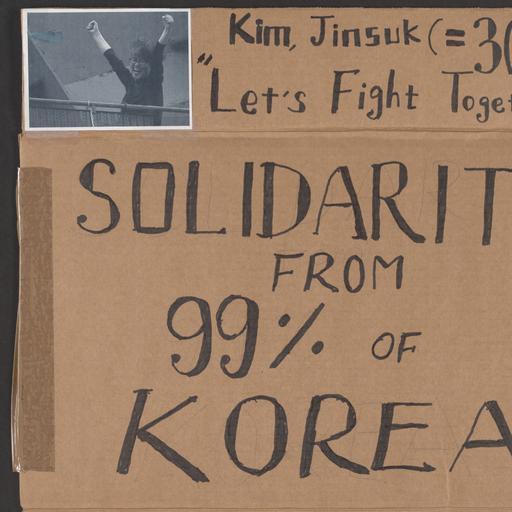 Kim, Jinsuk (=30
"Let's Fight Toget
SOLIDARIT
FROM
99% OF
KOREA